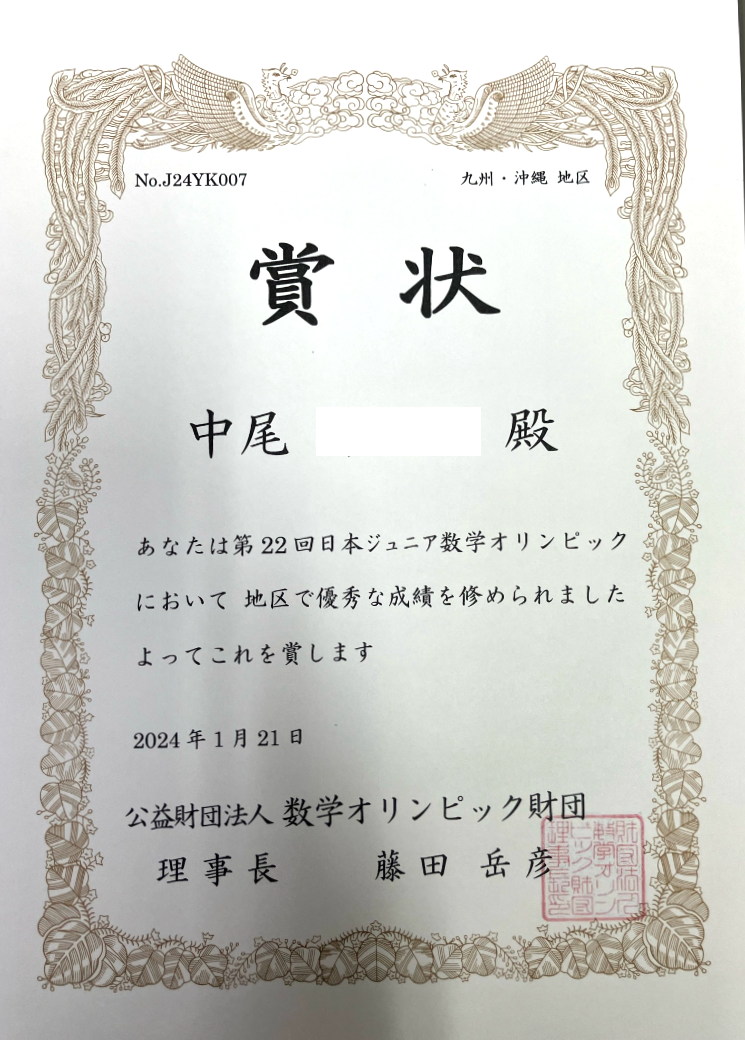 No.J24YK007
九州・沖縄 地区
賞 状
中尾 殿
あなたは第22回日本ジュニア数学オリンピック
において 地区で優秀な成績を修められました
よってこれを賞します
2024年1月21日
公益財団法人 数学オリンピック財団
理事長 藤田 岳彦